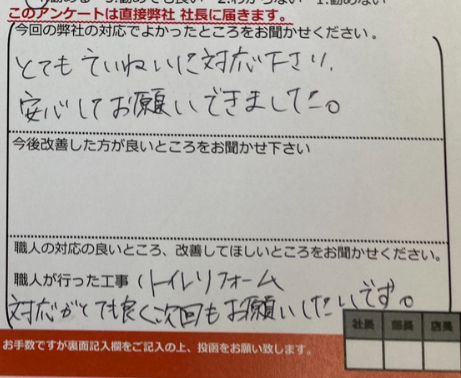 このアンケートは直接弊社 社長に届きます。
今回の弊社の対応でよかったところをお聞かせください。
とてもていねいに対応下さり、
安心してお願いできました。
今後改善した方が良いところをお聞かせ下さい
職人の対応の良いところ、改善してほしいところをお聞かせください。
職人が行った工事（トイレリフォーム
対応がとても良く次回もお願いしたいです。
社長 部長 店長
お手数ですが裏面記入欄をご記入の上、投函をお願い致します。